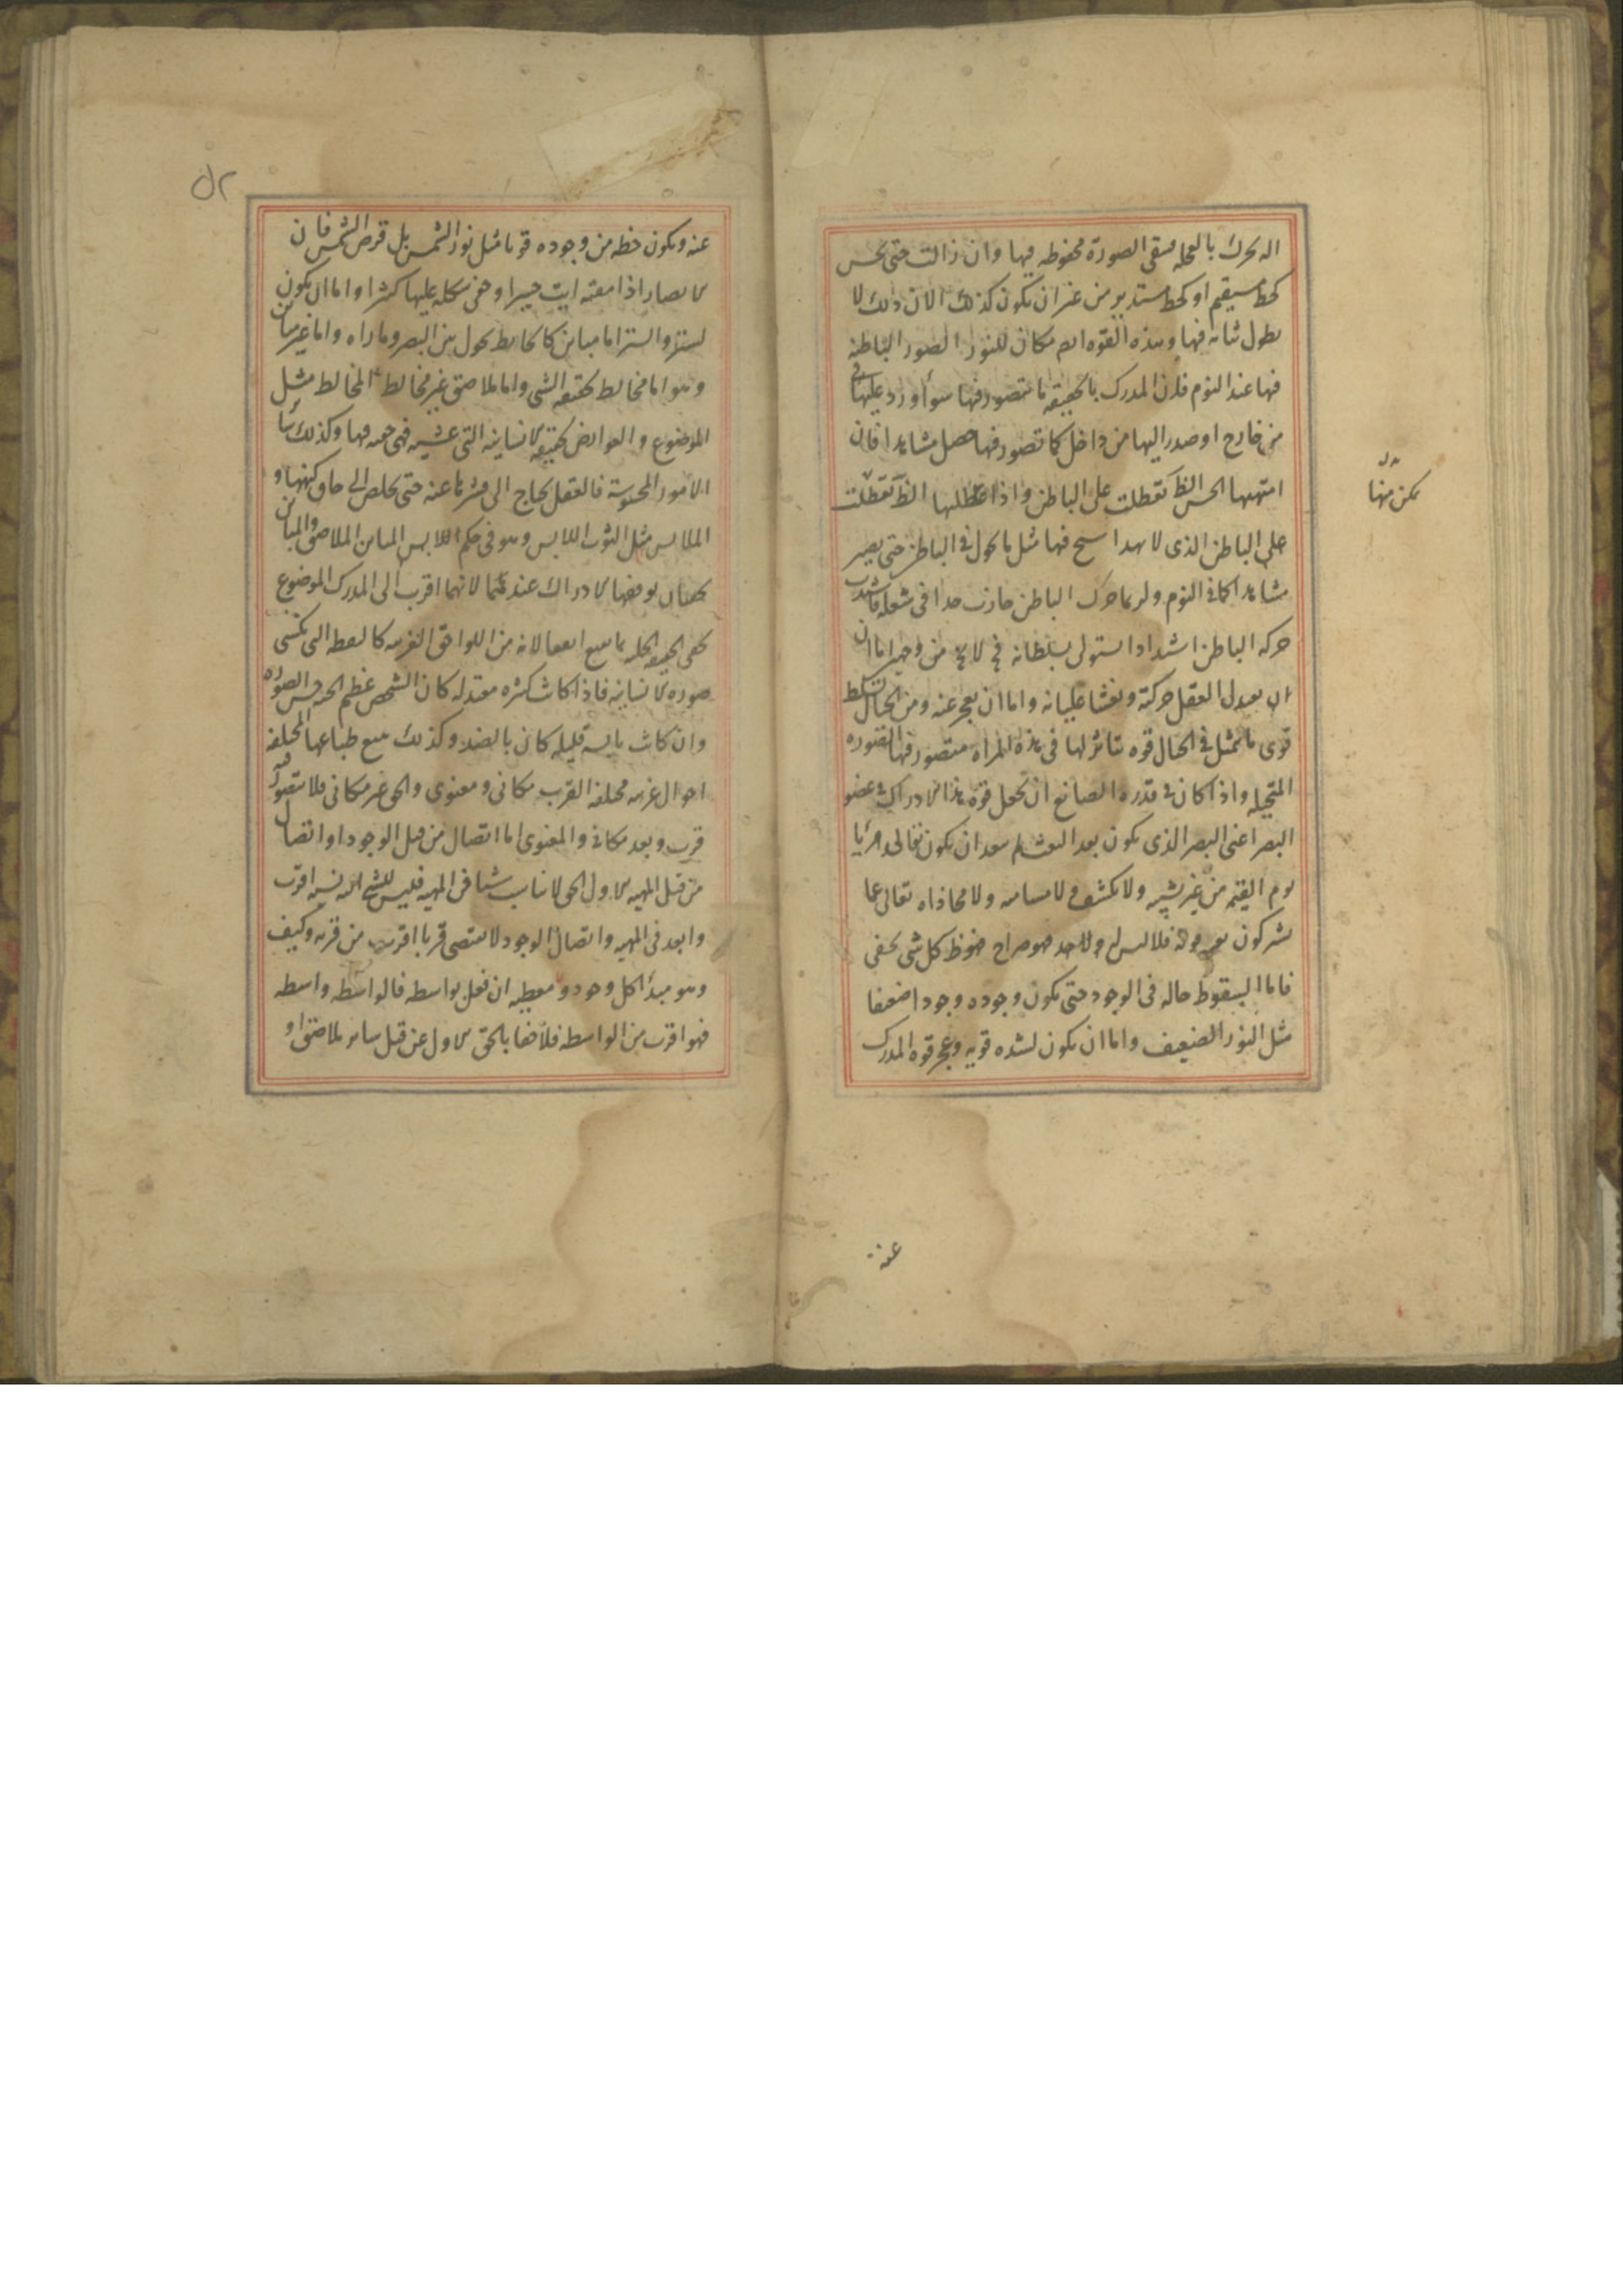 اله بحرك بالعجله فتبقى الصورة محفوظه فيها وان زالت حتى تحس
كخط مستقيم او كخط مستدير من غير ان يكون كذلك الا ان ذلك لا
يطول ثباته فيها وهذه القوه ايضا مكان لتقرر الصور الباطنه
فيها عند النوم فان المدرك بالحقيقه ما يتصور فيها سواء ورد عليها
من خارج او صدر اليها من داخل فما تصور فيها حصل مشاهدا فان
امتهنها الحس الظ تعطلت على الباطن واذا عطلها الظ تعطلت
يمكن منها
على الباطن الذى لا يهدا فيها مثل ما يحول فى الباطن حتى يصير
مشاهدا كما فى النوم ولربما جذب الباطن جاذب جدا فى شغله فاشتدت
حركه الباطن اشتدادا استولى بسلطانه فح لا يخ من وجهين اما ان
ان يعدل العقل حركته ويفثأ غليانه واما ان يعجز عنه
قوى ما تمثل فى الخيال قوه مباشرتها فى هذه المراه فتتصور فيها الصوره
المتخيله واذا كان فى قدره الصانع ان يجعل قوه هذا الادراك فى عضو
البصر اعنى البصر الذى يكون بعد البعث لم يبعد ان يكون تعالى مرئيا
يوم القيمه من غير تشبيه ولا تكيف ولا مسامته ولا محاذاه تعالى عما
يشركون فلا لبس له فهو صراح خفوظ كل شى يخفى
فاما لسقوط حاله فى الوجود حتى يكون وجوده وجودا ضعيفا
مثل النور الضعيف واما ان يكون لشده قوته وعجز قوه المدرك
عنه
عنه ويكون حظه من وجوده قويا مثل نور الشمس بل قرص الشمس فان
الابصار اذا رمقته ابت حسيرا وخفى شكله عليها كثيرا واما ان يكون
لستر والستر اما مباين كالحايط يحول بين البصر وما وراه واما غير مباين
وهو اما مخالط لحقيقه الشى واما ملاصق غير مخالط المخالط مثل
الموضوع والعوارض لحقيقه الانسانيه التى غشيته فهى خفيه فيها وكذلك سائر
الامور المحسوسة فالعقل يحتاج الى قشرها عنه حتى يخلص الى حاق كنهها و
الملابس مثل الثوب اللابس وهو فى حكم اللابس المباين الملاصق والمباين
يخفيان لتوقيفهما الادراك عندهما لانهما اقرب الى المدرك الموضوع
يخفى الحقيقه الجليه بما يتبع انفعالاته من اللواحق الغريبه كالنطفه التى تكتسى
صوره الانسانيه فاذا كانت كثيره معتدله كان الشخص عظيم الجثه حسن الصوره
وان كانت يابسه قليله كان بالضد وكذلك يتبع طباعها المختلفه
احوال غريبه مختلفه القرب مكانى ومعنوى والحق غير مكانى فلا يتصور فيه
قرب وبعد مكانى والمعنوى اما اتصال من قبل الوجود او اتصال
من قبل المهيه الاول الحق لا يناسب شيئا فى المهيه فليس للشى اليه نسبه اقرب
وابعد فى المهيه واتصال الوجود لا يقتضى قربا اقرب من قربه وكيف
وهو مبدأ كل وجود و معطيه ان فعل بواسطه فالواسطه واسطه
فهو اقرب من الواسطه فلا خفا بالحق الاول عن قبل ساتر ملاصق او